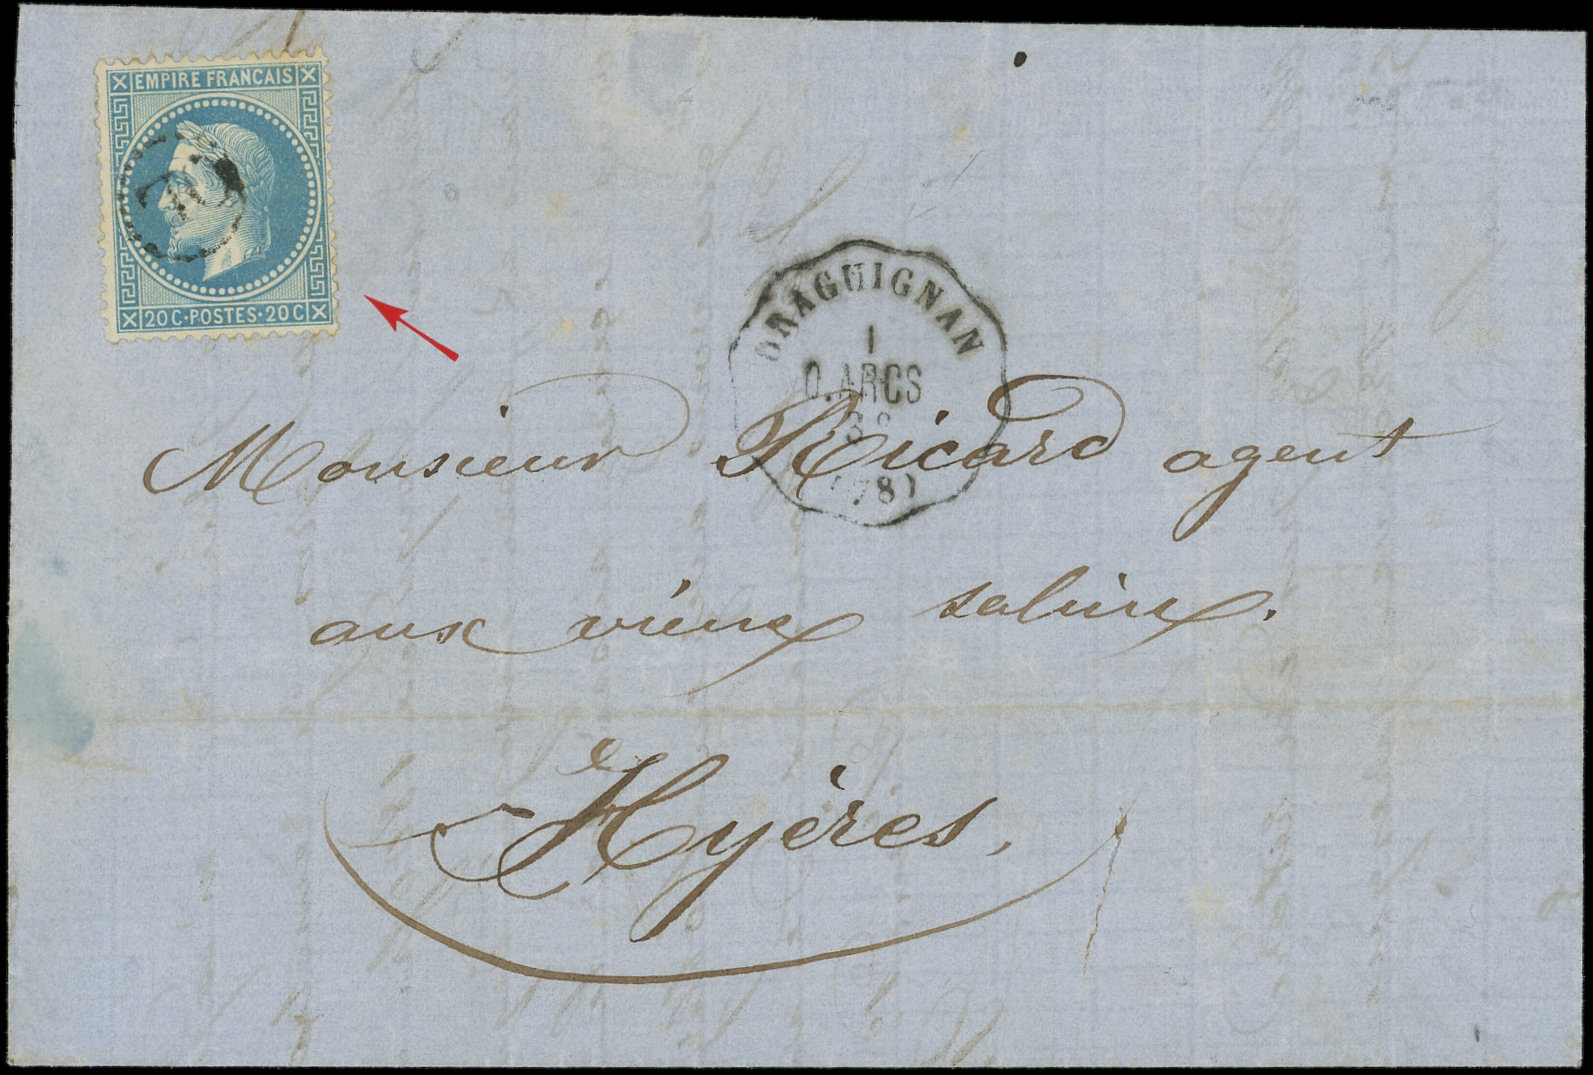 EMPIRE FRANCAIS
20C·POSTES·20C
DRAGUIGNAN
1
D.ARCS
(78)
Monsieur Ricard agent
aux vieux salins.
Hyères.